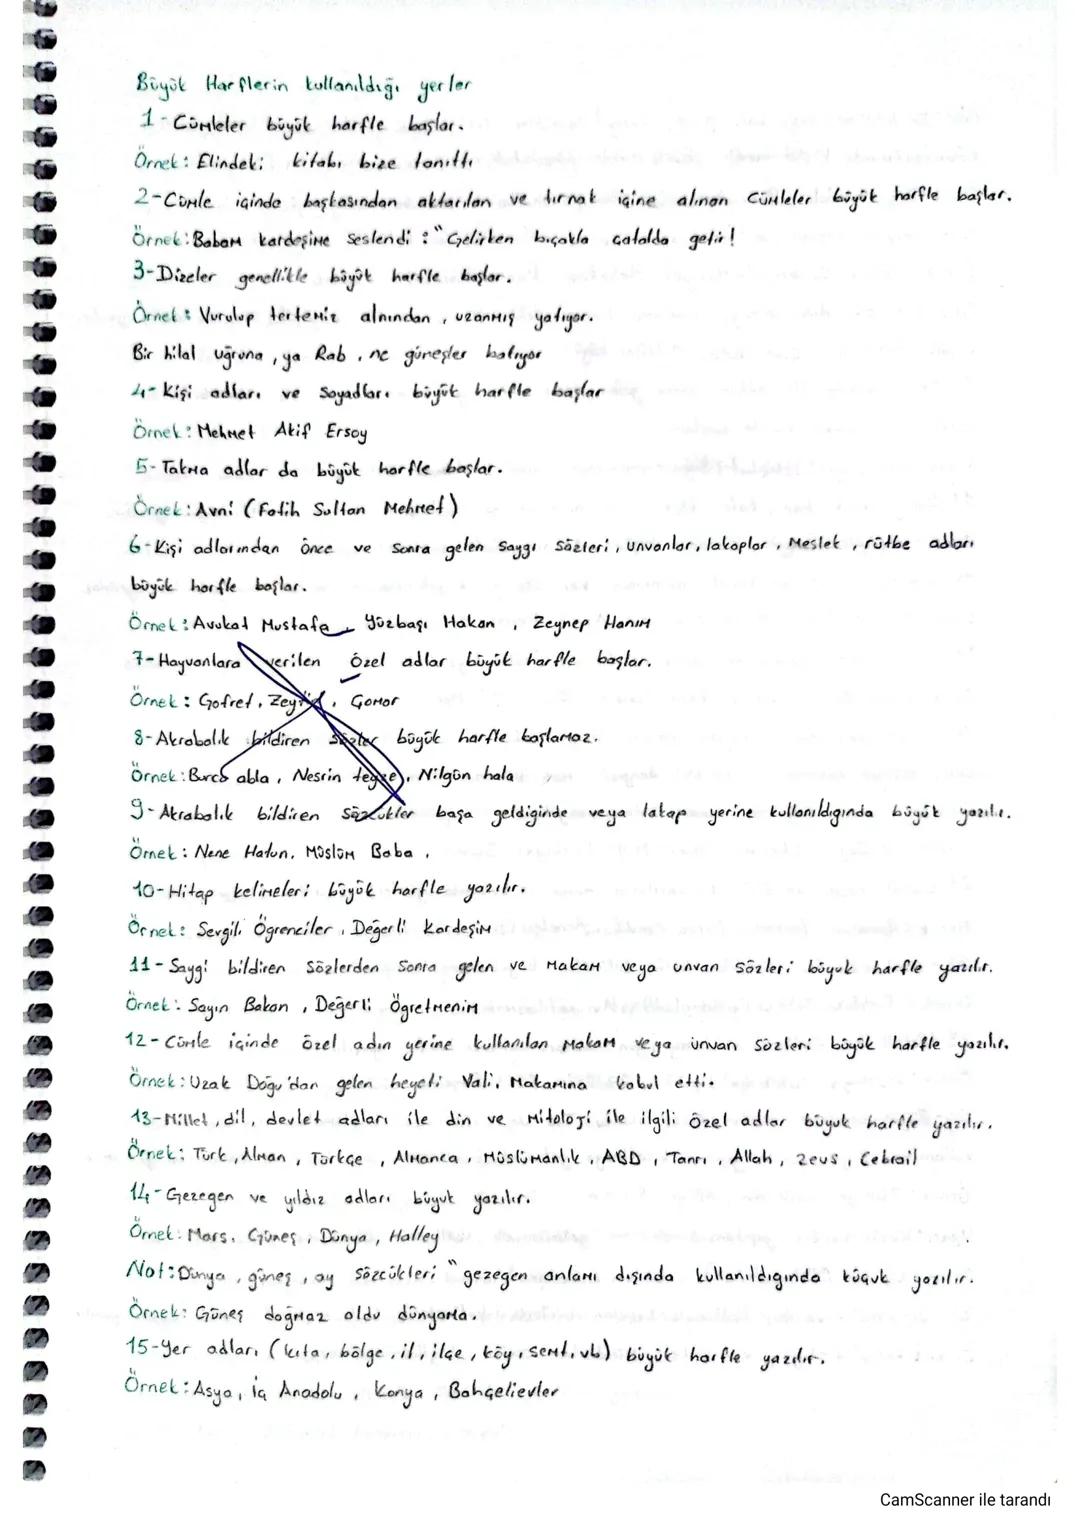 Büyük Harflerin kullanıldığı yerler
1- Cümleler büyük harfle başlar.
Örnek: Elindeki kitabı bize tanıttı
2-Cümle içinde başkasından aktarılan ve tırnak içine alınan Cümleler büyük harfle başlar.
Örnek: Babam kardeşime Seslendi : "Gelirken bıçakla çatalda getir!
3-Dizeler genellikle büyük harfle başlar.
Örnek: Vurulup tertemiz alnından, uzanmış yatıyor.
Bir hilal uğruna, ya Rab, ne güneşler batıyor
4- Kişi adları ve Soyadları büyük harfle başlar
Örnek: Mehmet Akif Ersoy
5- Takma adlar da büyük harfle başlar.
Örnek: Avni (Fatih Sultan Mehmet)
6-Kişi adlarından önce ve sonra gelen Saygı Sözleri, unvanlar, lakaplar, Meslek, rütbe adları
büyük harfle başlar.
Örnek: Avukat Mustafa, Yüzbaşı Hakan, Zeynep Hanım
7-Hayvanlara verilen özel adlar büyük harfle başlar.
Örnek: Gofret, Zeytin, Gomor
8-Akrabalık bildiren sözler büyük harfle başlamaz.
Örnek: Burcu abla, Nesrin teyze, Nilgün hala
9-Akrabalık bildiren Sözcükler başa geldiginde veya lakap yerine kullanıldıgında büyük yazılır.
Örnek: Nene Hatun, Müslüm Baba,
10-Hitap kelimeleri büyük harfle yazılır.
Örnek: Sevgili Öğrenciler, Değerli Kardeşim
11-Saygi bildiren Sözlerden Sonra gelen ve Makam veya unvan Sözleri büyuk harfle yazılır.
Örnek: Sayın Bakan, Değerli Ögretmenim
12- Cümle içinde özel adın yerine kullanılan Makam veya ünvan Sözleri büyük harfle yazılır.
Örnek: Uzak Doğu'dan gelen heyeti Vali, Makamına kabul etti.
13-Millet, dil, devlet adları ile din ve mitoloji ile ilgili özel adlar büyuk harfle yazılır.
Örnek: Türk, Alman, Türkçe, Almanca, Müslümanlık, ABD, Tanrı, Allah, Zeus, Cebrail
14-Gezegen ve yıldız adları büyuk yazılır.
Örnek: Mars, Güneş, Dünya, Halley
Not: Dünya, güneş, ay Sözcükleri " gezegen anlamı dışında kullanıldıgında küçuk yazılır.
Örnek: Güneş doğmaz oldu dünyama.
15-Yer adları (kıta, bölge, il, ilçe, köy, semt, vb) büyük harfle yazılır.
Örnek: Asya, iç Anadolu, Konya, Bahçelievler
CamScanner ile tarandı